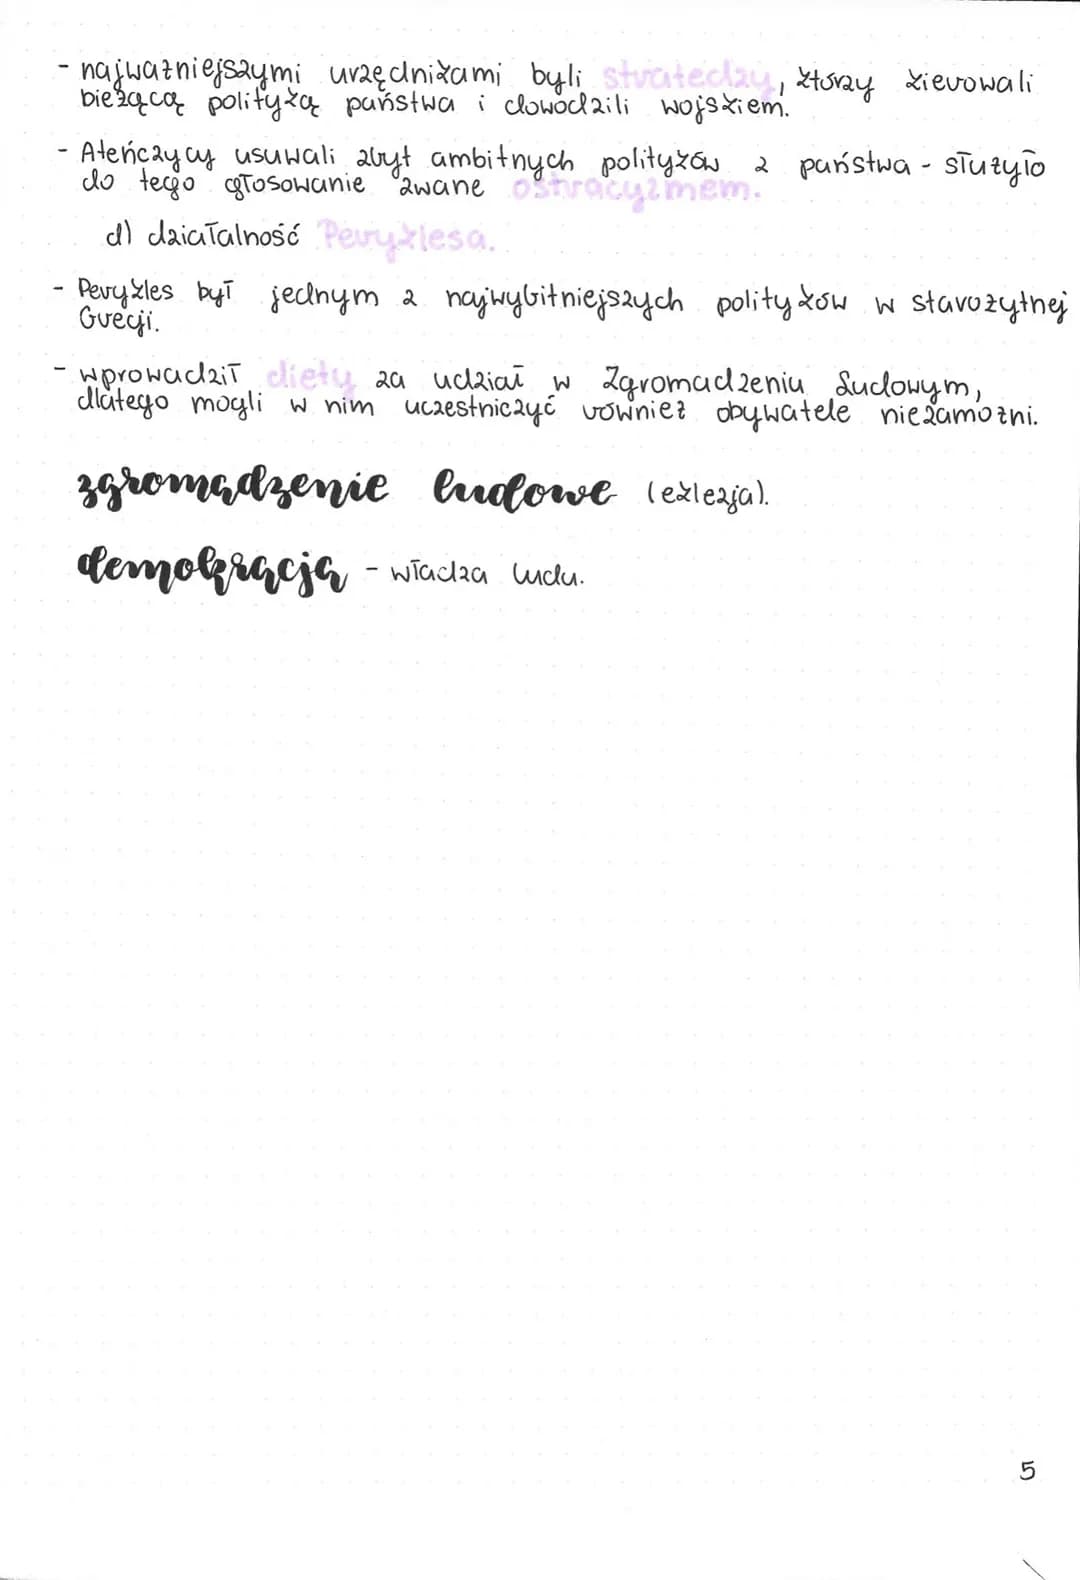 - najważniejszymi urzędnikami byli stratedzy, którzy kierowali
bieżącą polityką państwa i dowodzili wojskiem.
- Ateńczycy usuwali zbyt ambitnych polityków z państwa - służyło
do tego głosowanie zwane ostracyzmem.
d) działalność Peryklesa.
- Perykles był jednym z najwybitniejszych polityków w starożytnej
Grecji.
- wprowadził diety za udział w Zgromadzeniu Ludowym,
dlatego mogli w nim uczestniczyć również obywatele niezamożni.
zgromadzenie ludowe (eklezja).
demokracja - władza ludu.
5